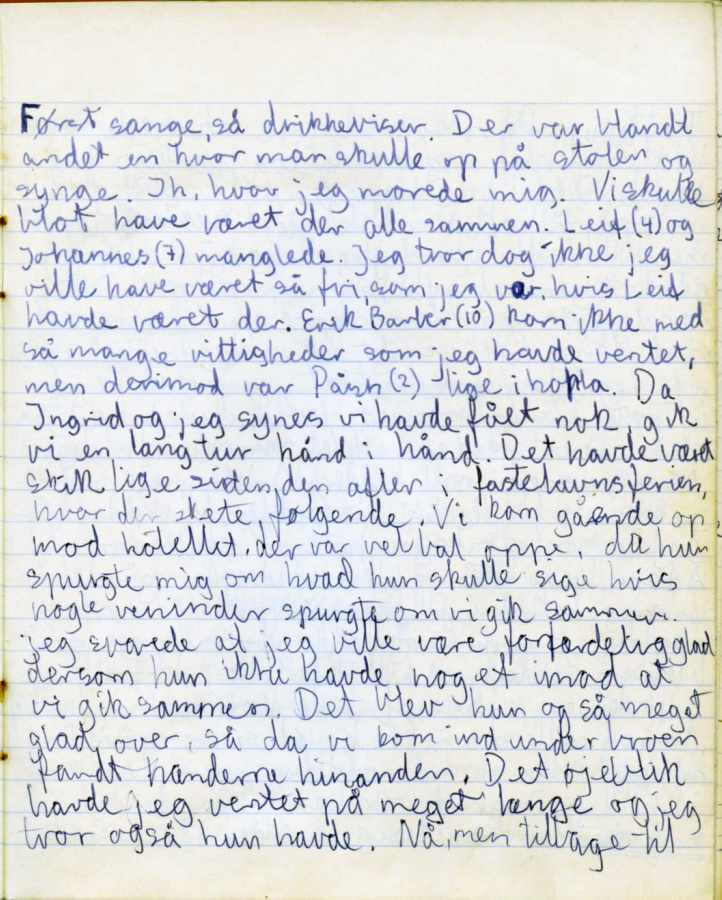 Først sange, så drikkeviser. Der var blandt
andet en hvor man skulle op på stolen og
synge. Ih, hvor jeg morede mig. Vi skulle
blot have været der alle sammen. Leif (4) og
Johannes (7) manglede. Jeg tror dog ikke jeg
ville have været så fri, som jeg var, hvis Leif
havde været der. Erik Barker (10) kom ikke med
så mange vittigheder som jeg havde ventet,
men derimod var Påsk (2) lige i hopla. Da
Ingrid og jeg synes vi havde fået nok, gik
vi en lang tur hånd i hånd. Det havde været
skik lige siden den aften i fastelavnsferien,
hvor der skete følgende. Vi kom gående op
mod hotellet. der var vel bal oppe, da hun
spurgte mig om hvad hun skulle sige hvis
nogle veninder spurgte om vi gik sammen.
jeg svarede at jeg ville være forfærdelig glad
dersom hun ikke havde noget imod at
vi gik sammen. Det blev hun også meget
glad over, så da vi kom ind under broen
fandt hænderne hinanden. Det øjeblik
havde jeg ventet på meget længe og jeg
tror også hun havde. Nå, men tilbage til